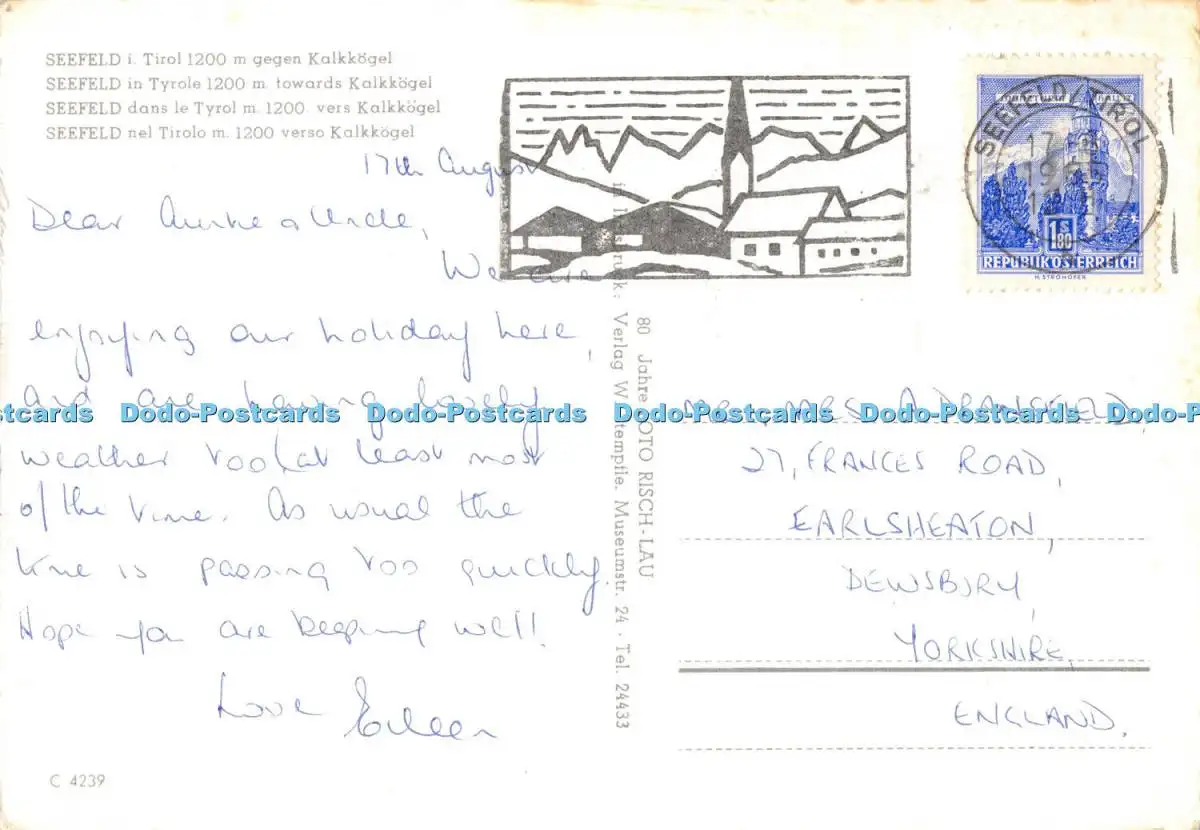 SEEFELD i. Tirol 1200 m gegen Kalkkögel
SEEFELD in Tyrole 1200 m. towards Kalkkögel
SEEFELD dans le Tyrol m. 1200 vers Kalkkögel
SEEFELD nel Tirolo m. 1200 verso Kalkkögel
17th August
Dear Auntie & Uncle,
We are
enjoying our holiday here,
and are having lovely
weather too (at least most
of the time. As usual the
time is passing too quickly.
Hope you are keeping well!
Love Eileen
C 4239
80 Jahre FOTO RISCH-LAU
Verlag W Stempfle, Museumstr. 24 · Tel. 24433
SEEFELD/TIROL
17
19
1.80
S
REPUBLIK ÖSTERREICH
H. STROHOFER
MR. MRS A. DRANSFIELD,
27, FRANCES ROAD,
EARLSHEATON,
DEWSBURY,
YORKSHIRE,
ENGLAND.
stcards Dodo-Postcards Dodo-Postcards Dodo-Postcards Dodo-Postcards Dodo-Post